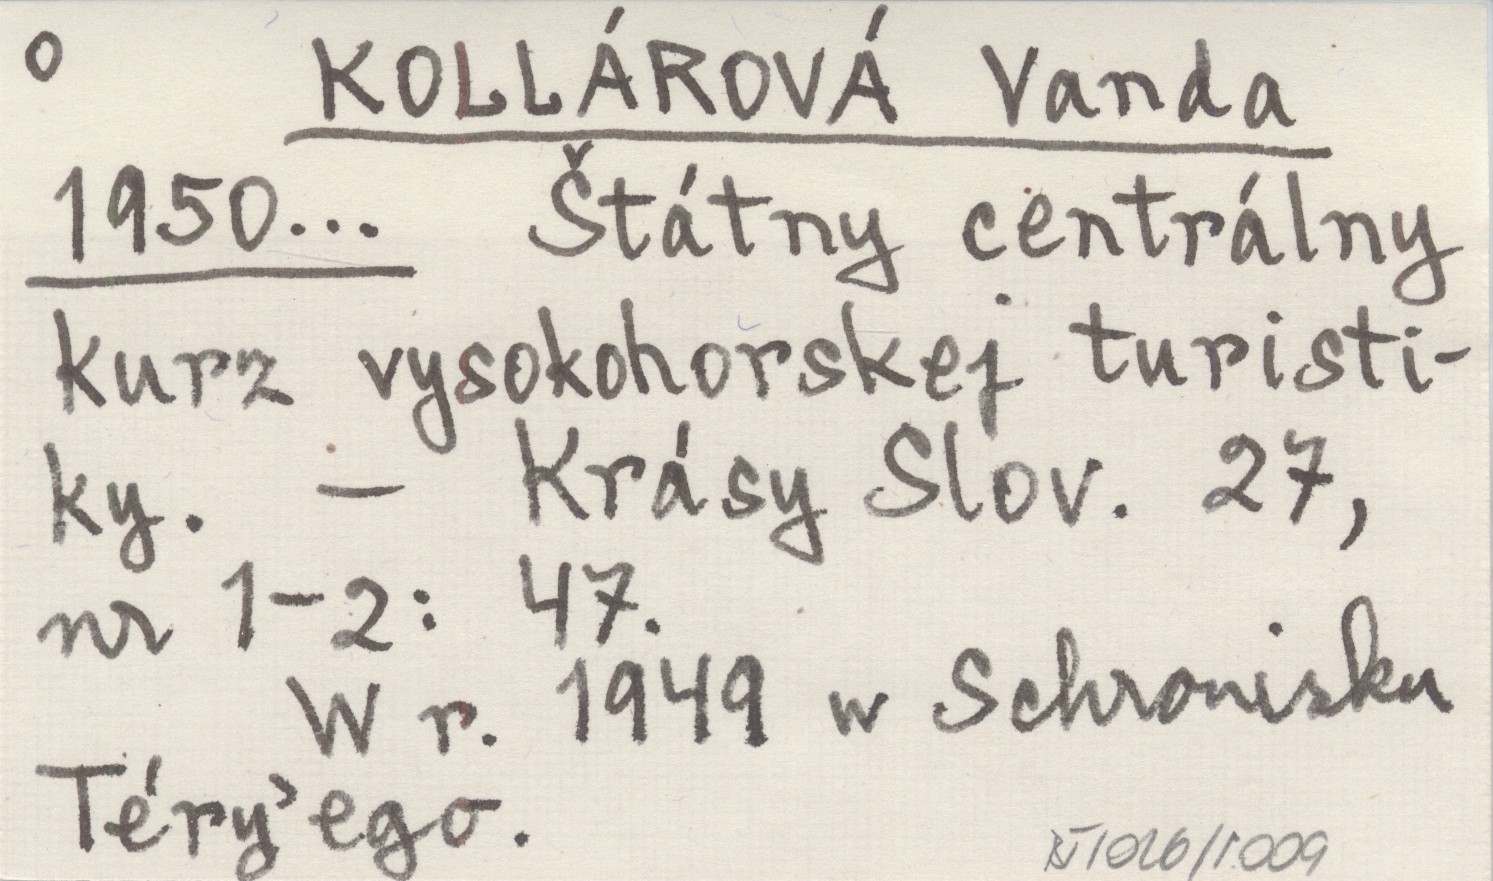 o KOLLÁROVÁ Vanda
1950... Štátny centrálny
kurz vysokohorskej turisti-
ky. – Krásy Slov. 27,
nr 1–2: 47.
W r. 1949 w Schronisku
Téry'ego.
1026/1.009